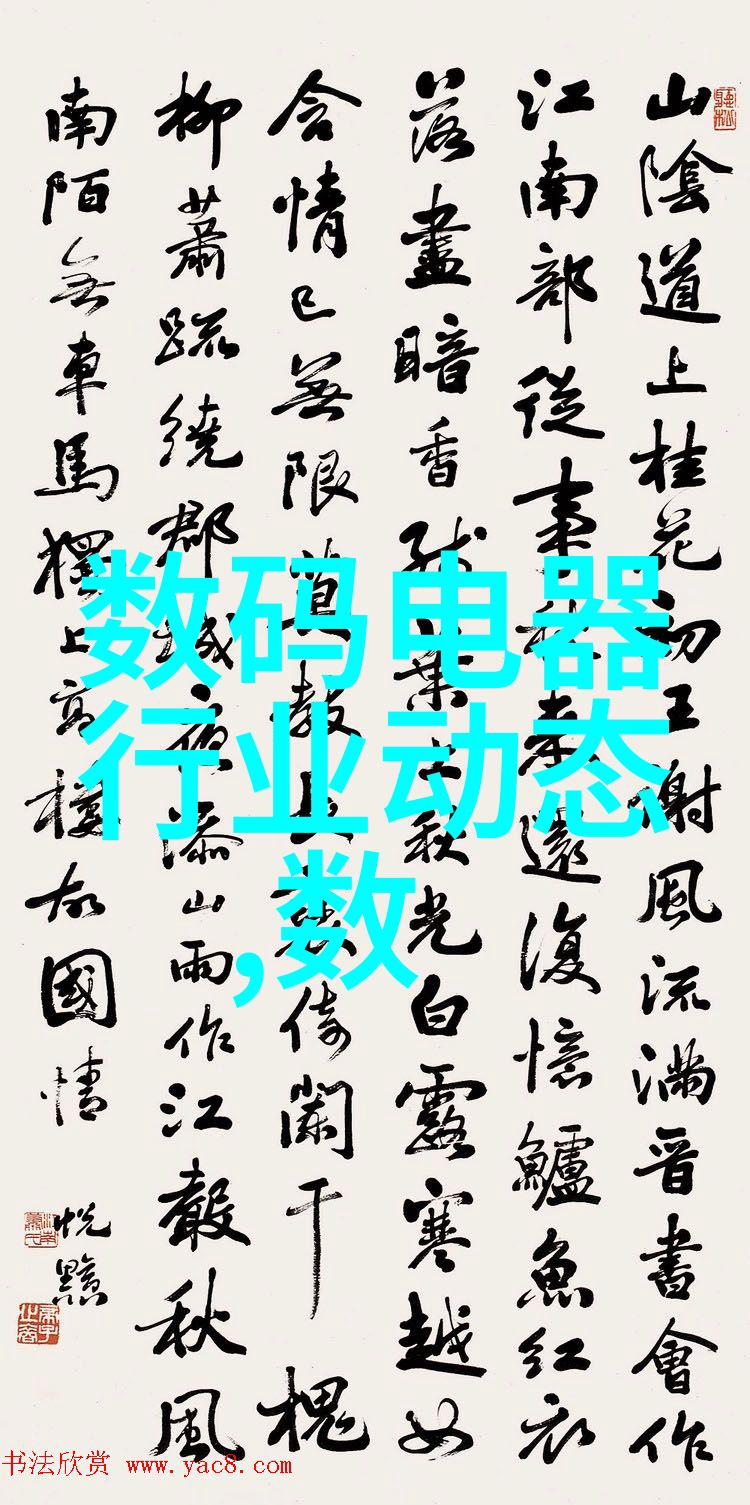 山陰道上桂花初王謝風流滿晋書會作
江南部從事秋来還復憶鱸魚紅衣
落盡暗香殘葉上秋光白露寒越女
含情已無限莫教長袖倚闌干 槐
柳蕭疏繞郡城夜添山雨作江聲秋風
南陌無車馬獨上高樓故國情
数码电器
行业动态
,数
书法欣赏 www.yac8.com